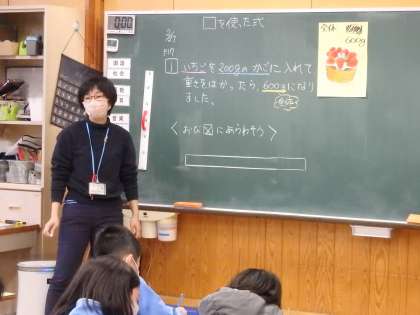 □を使った式
P17
1 いちごを200gのかごに入れて
重さをはかったら、600gになり
ました。
全体
600g
<おび図にあらわそう>
国語
社会